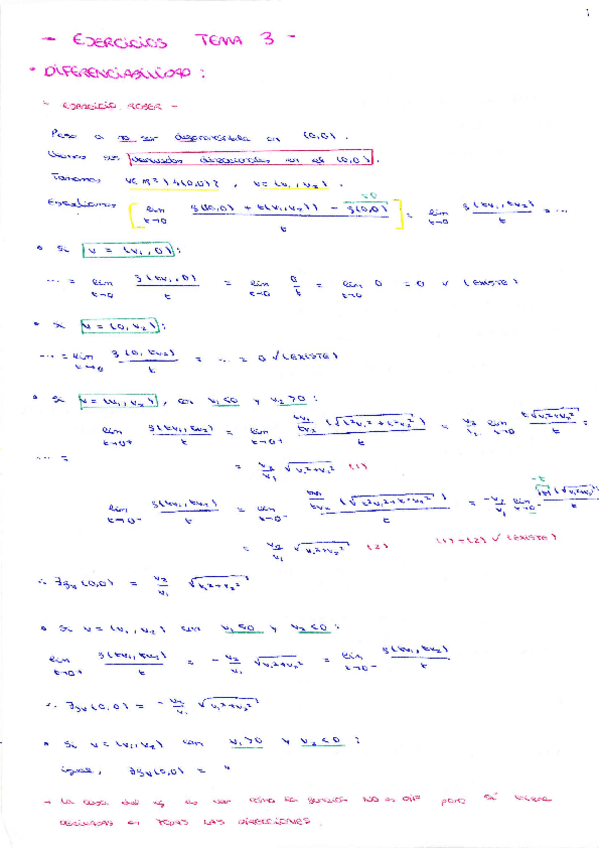 - EJERCICIOS TEMA 3 -
• DIFERENCIABILIDAD :
- EJERCICIO -
Pese a no ser diferenciable en (0,0).
Veamos sus derivadas direccionales en el (0,0).
Tomamos v ∈ ℝ² \ {(0,0)}, v = (v₁, v₂).
Estudiamos [ lim t→0 g((0,0) + t(v₁,v₂)) - g(0,0) / t ] = lim t→0 g(tv₁, tv₂) / t = ...
=0
• Si v = (v₁, 0):
... = lim t→0 g(tv₁, 0) / t = lim t→0 0/t = lim t→0 0 = 0 ✓ (EXISTE)
• Si v = (0, v₂):
... = lim t→0 g(0, tv₂) / t = ... = 0 ✓ (EXISTE)
• Si v = (v₁, v₂), con v₁ ≤ 0 y v₂ > 0 :
lim t→0+ g(tv₁, tv₂) / t = lim t→0+
... =
= v₂/v₁ √v₁²+v₂² (1)
lim t→0- g(tv₁, tv₂) / t = lim t→0-
= v₂/v₁ √v₁²+v₂² (2) (1)=(2) ✓ (EXISTE)
∴ ∂gv (0,0) = v₂/v₁ √v₁²+v₂²
• Si v = (v₁, v₂) con v₁ ≤ 0 y v₂ < 0 :
lim t→0+ g(tv₁, tv₂) / t = - v₂/v₁ √v₁²+v₂² = lim t→0- g(tv₁, tv₂) / t
∴ ∂gv (0,0) = - v₂/v₁ √v₁²+v₂²
• Si v = (v₁, v₂) con v₁ > 0 y v₂ < 0 :
igual, ∂gv(0,0) = "
→ La cosa del ej es ver cómo la función NO es DIF pero sí tiene
DERIVADAS en TODAS LAS DIRECCIONES.